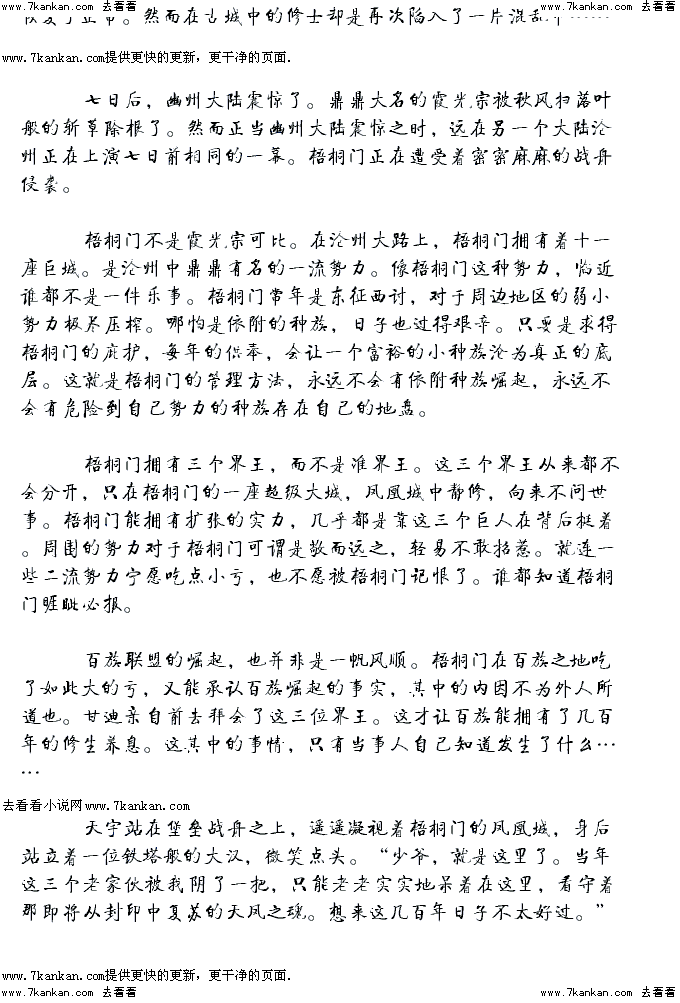 恢复了正常。然而在古城中的修士却是再次陷入了一片混乱中……
www.7kankan.com 去看看 www.7kankan.com 去看看
www.7kankan.com提供更快的更新，更干净的页面.
七日后，幽州大陆震惊了。鼎鼎大名的霞光宗被秋风扫落叶
般的斩草除根了。然而正当幽州大陆震惊之时，远在另一个大陆沧
州正在上演七日前相同的一幕。梧桐门正在遭受着密密麻麻的战舟
侵袭。
梧桐门不是霞光宗可比。在沧州大路上，梧桐门拥有着十一
座巨城。是沧州中鼎鼎有名的一流势力。像梧桐门这种势力，临近
谁都不是一件乐事。梧桐门常年是东征西讨，对于周边地区的弱小
势力极尽压榨。哪怕是依附的种族，日子也过得艰辛。只要是求得
梧桐门的庇护，每年的供奉，会让一个富裕的小种族沦为真正的底
层。这就是梧桐门的管理方法，永远不会有依附种族崛起，永远不
会有危险到自己势力的种族存在自己的地盘。
梧桐门拥有三个界王，而不是准界王。这三个界王从来都不
会分开，只在梧桐门的一座超级大城，凤凰城中静修，向来不问世
事。梧桐门能拥有扩张的实力，几乎都是靠这三个巨人在背后挺着
。周围的势力对于梧桐门可谓是敬而远之，轻易不敢招惹。就连一
些二流势力宁愿吃点小亏，也不愿被梧桐门记恨了。谁都知道梧桐
门睚眦必报。
百族联盟的崛起，也并非是一帆风顺。梧桐门在百族之地吃
了如此大的亏，又能承认百族崛起的事实，其中的内因不为外人所
道也。甘迪亲自前去拜会了这三位界王。这才让百族能拥有了几百
年的修生养息。这其中的事情，只有当事人自己知道发生了什么…
…
去看看小说网www.7kankan.com
天宇站在堡垒战舟之上，遥遥凝视着梧桐门的凤凰城，身后
站立着一位铁塔般的大汉，微笑点头。“少爷，就是这里了。当年
这三个老家伙被我阴了一把，只能老老实实地呆着在这里，看守着
那即将从封印中复苏的天凤之魂。想来这几百年日子不太好过。”
www.7kankan.com提供更快的更新，更干净的页面.
www.7kankan.com 去看看 www.7kankan.com 去看看